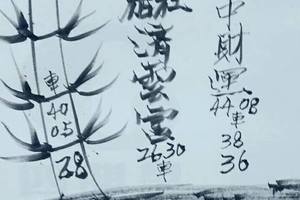 中財運
44 08
車
38
36
清雲宮
26 30
車
車
40
05
28